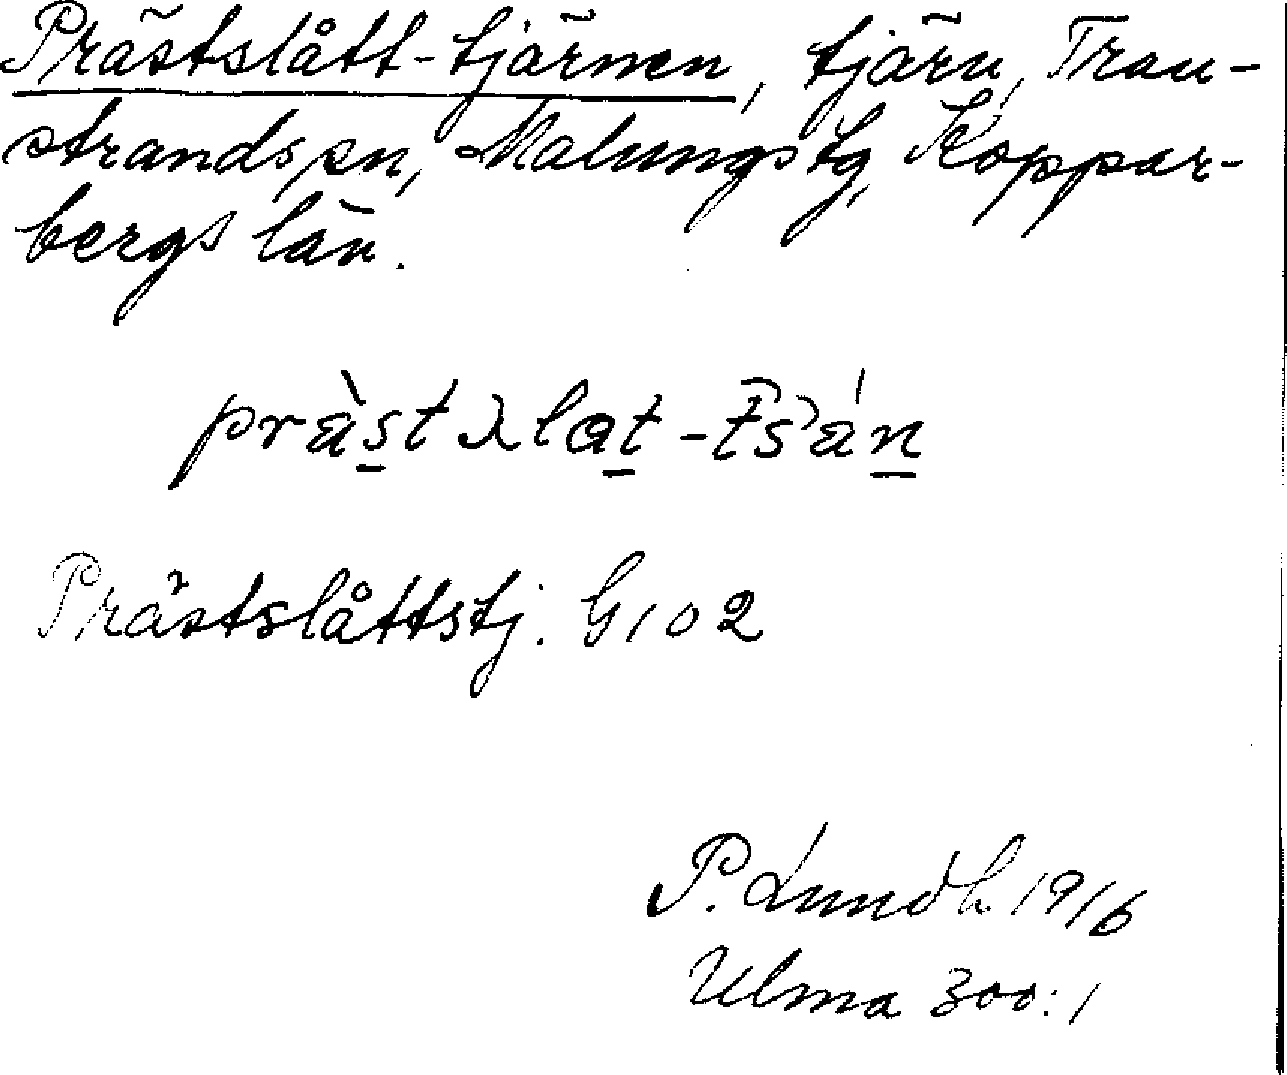 Prästslått-tjärnen, tjärn, Tran-
strands sn, Malungs tg, Koppar-
bergs län.
Prästslåttstj. G 102
P. Lundh. 1916
Ulma 300:1